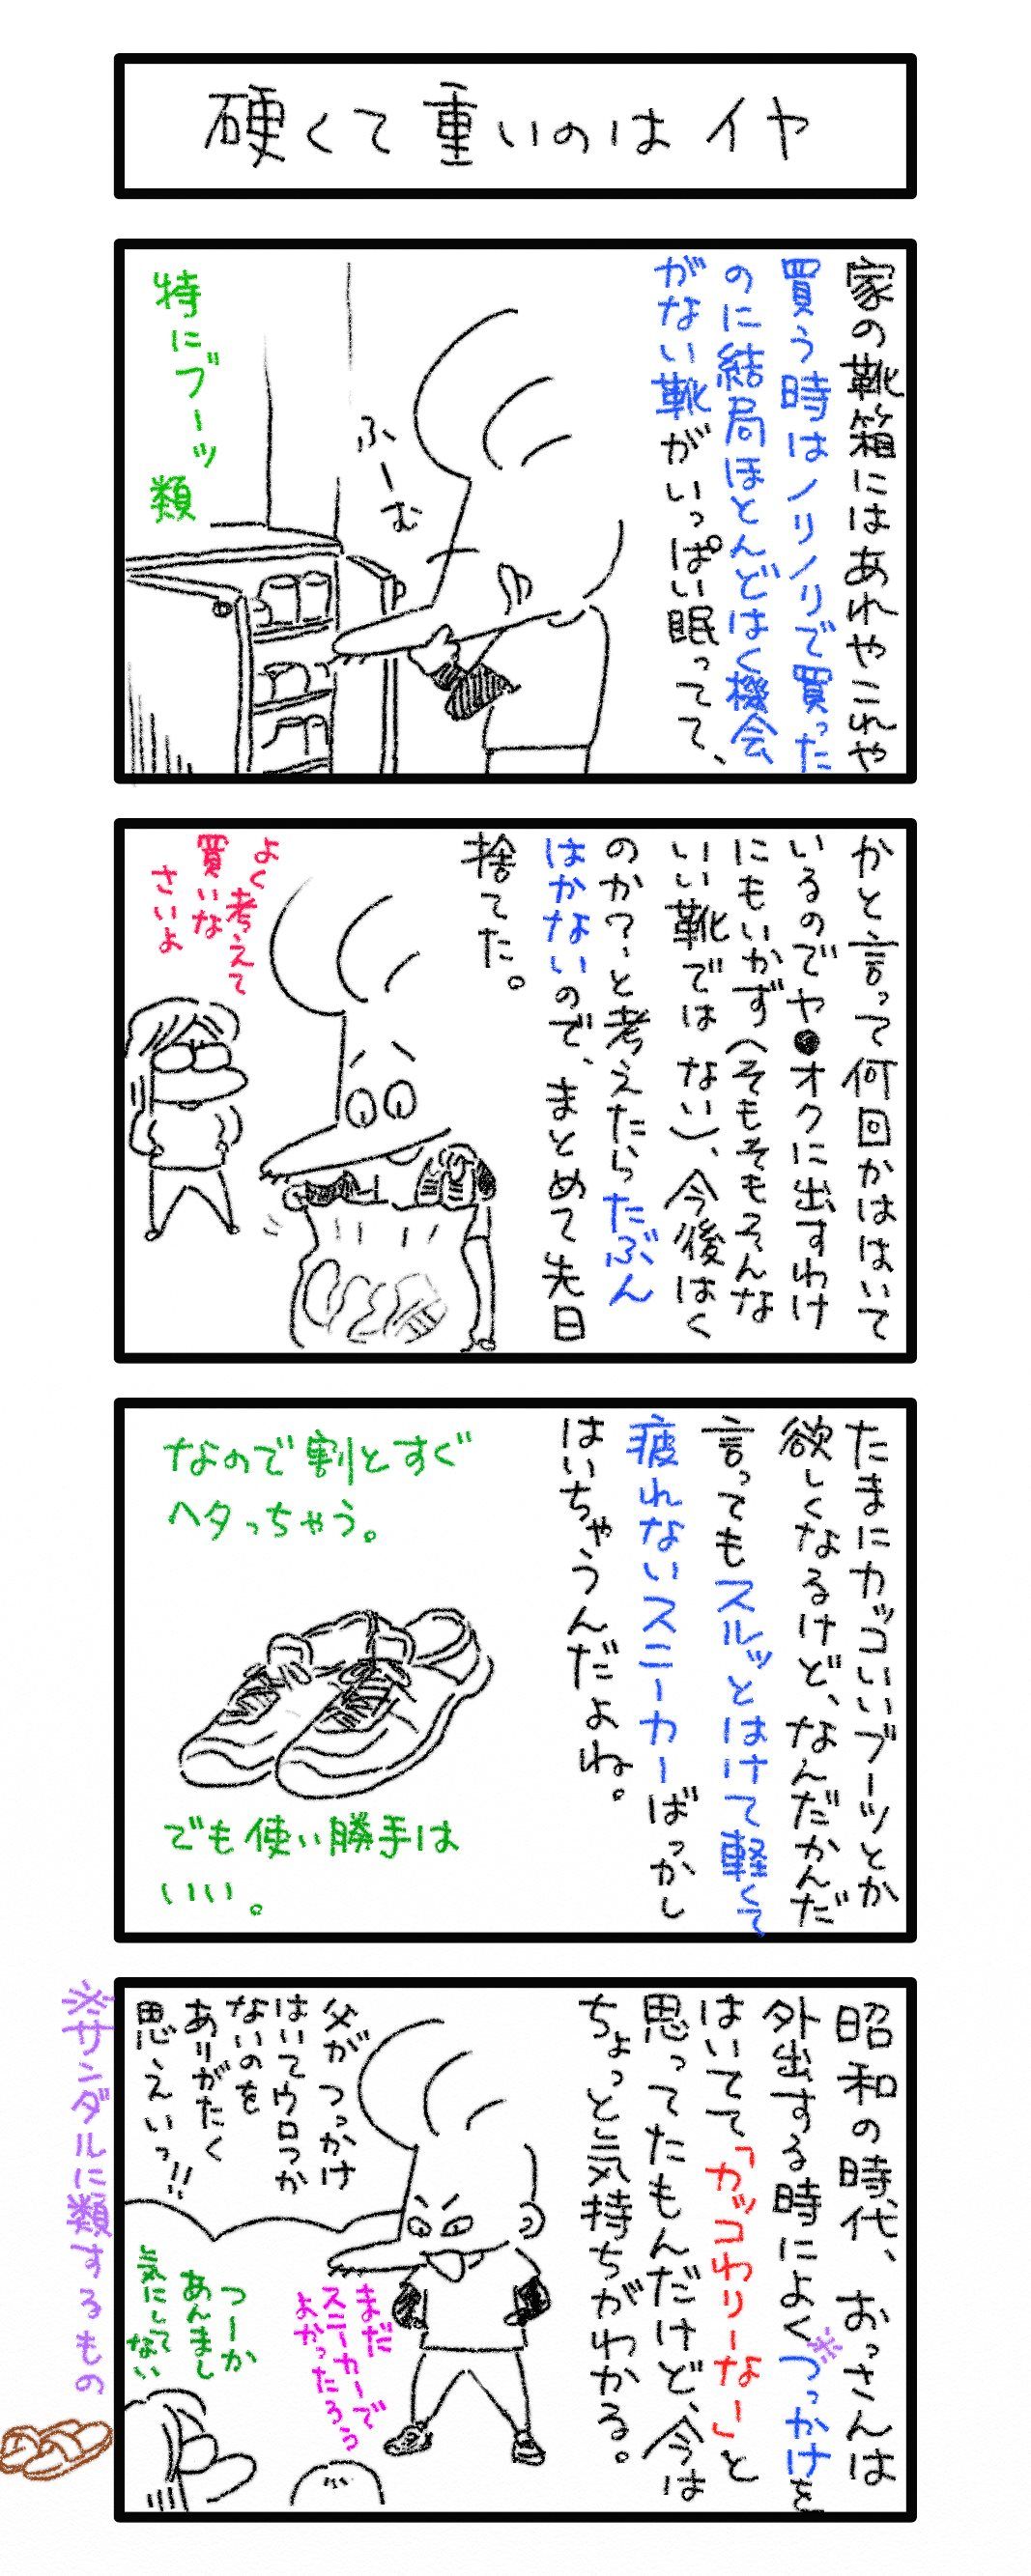 硬くて重いのはイヤ
家の靴箱にはあれやこれや
買う時はノリノリで買った
のに結局ほとんどはく機会
がない靴がいっぱい眠ってて、
ふーむ
特にブーツ
類
かと言って何回かははいて
いるのでヤ●オクに出すわけ
にもいかず(そもそもそんな
いい靴ではない)、今後はく
のか?と考えたらたぶん
はかないので、まとめて先日
捨てた。
よく考えて
買いな
さいよ
たまにカッコいいブーツとか
欲しくなるけど、なんだかんだ
言ってもスルッとはけて軽くて
疲れないスニーカーばっかし
はいちゃうんだよね。
なので割とすぐ
ヘタっちゃう。
でも使い勝手は
いい。
昭和の時代、おっさんは
外出する時によく※つっかけを
はいてて「カッコわりーな」と
思ってたもんだけど、今は
ちょっと気持ちがわかる。
父がつっかけ
はいてウロつか
ないのを
ありがたく
思えいっ!!
まだ
スニーカーで
よかったろう
つーか
あんまし
気にしてない
※サンダルに類するもの